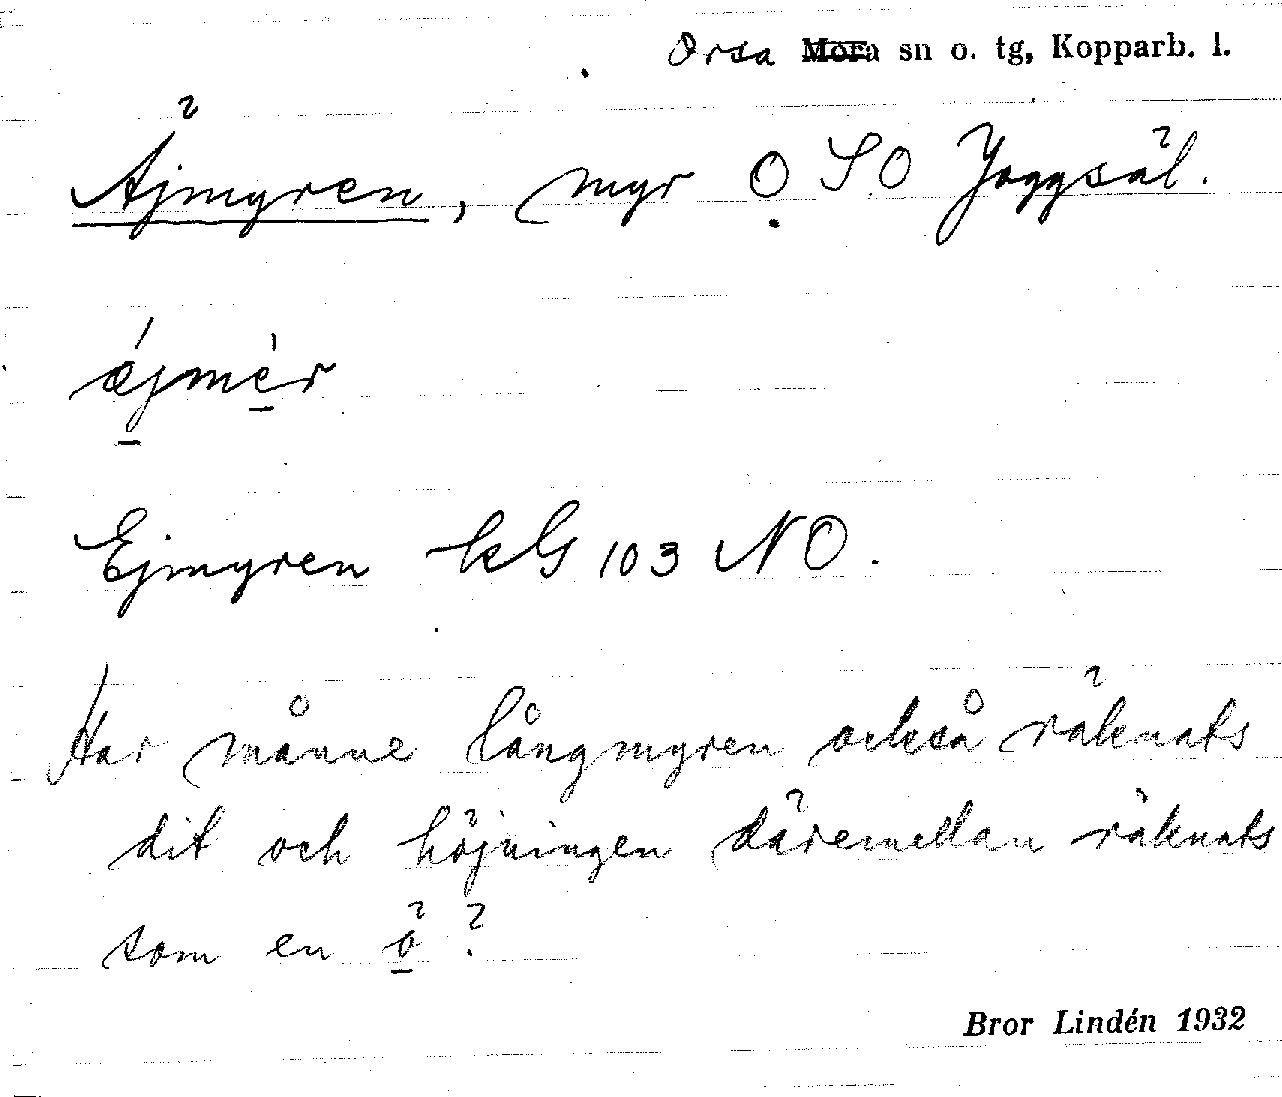 Orsa Mora sn o. tg, Kopparb. l.
Äjmyren, myr O S.O Joggsäl.
ǽjmèr
Ejmyren kG 103 NO.
Har månne Långmyren också räknats
dit och höjningen däremellan räknats
som en ö?
Bror Lindén 1932